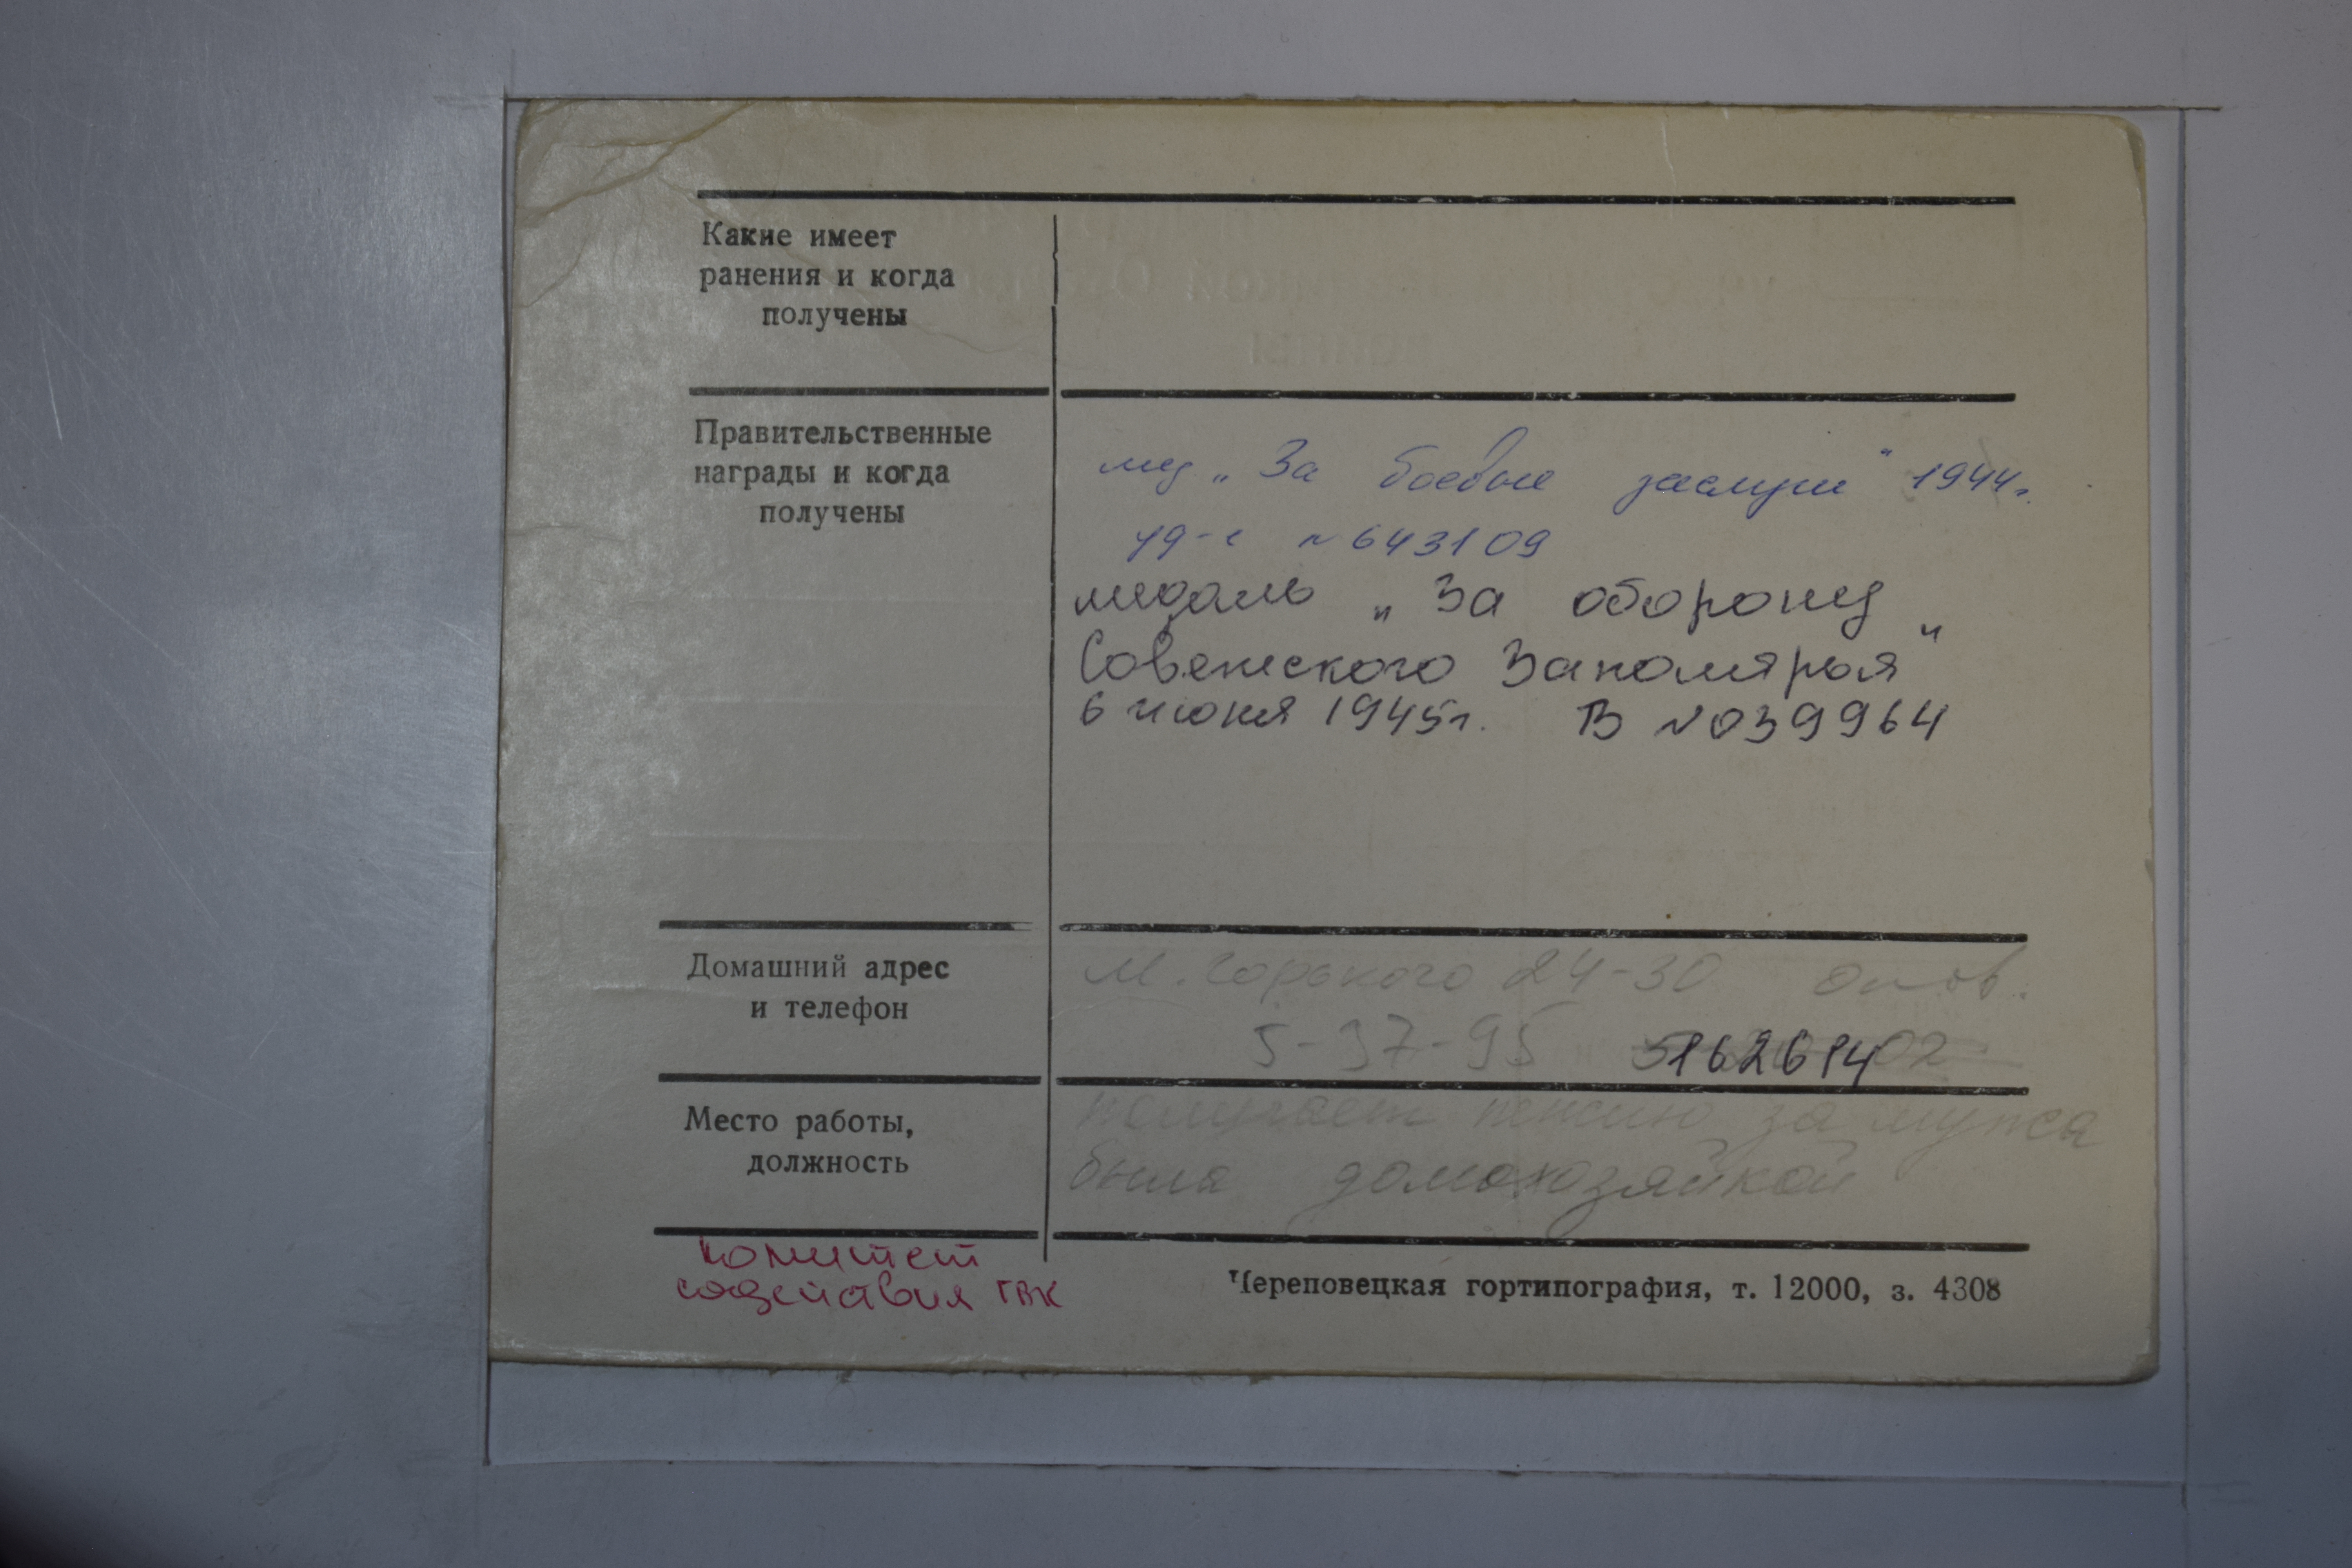 Какие имеет
ранения и когда
получены
Правительственные
награды и когда
получены
мед „За боевые заслуги" 1944г.
уд-е № 643109
медаль „За оборону
Советского Заполярья"
6 июня 1945г. В №039964
Домашний адрес
и телефон
М. Горького 24-30
5-37-95 5162614
Место работы,
должность
получает пенсию за мужа
была домохозяйкой
Комитет
содействия ГВК
Череповецкая гортипография, т. 12000, з. 4308